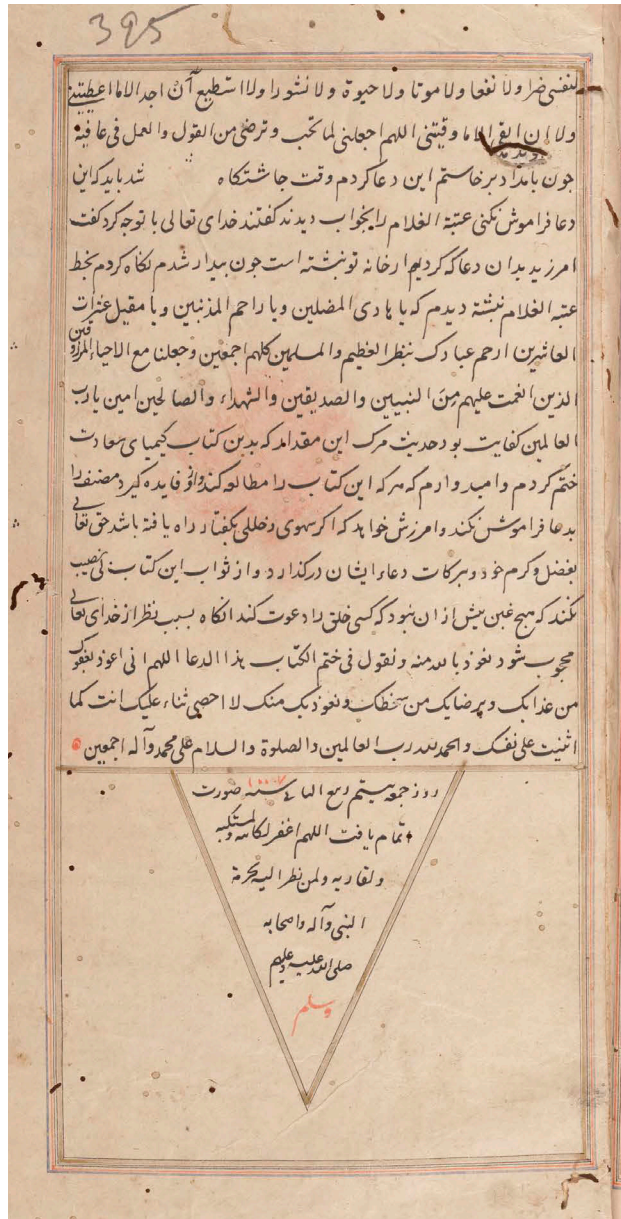 395
لنفسی ضرا ولا نفعا ولا موتا ولا حیوة ولا نشورا ولا استطیع آن اجد الا ما اعطیتنی
ولا ان اتقی الا ما وقیتنی اللهم اجعلنی لما تحب وترضی من القول والعمل فی عافیة
جون بامداد برخاستم این دعا کردم وقت جاشتکاه شد باید که این
دعا فراموش نکنی عتبة الغلام را بخواب دیدند کفتند خدای تعالی با تو جه کرد کفت
امرزید بدان دعا که کردیم ارخانه تو نبشته است جون بیدار شدم نکاه کردم بخط
عتبه الغلام نبشتة دیدم که یا هادی المضلین ویا راحم المذنبین ویا مقیل عثرات
العاثرین ارحم عبادک بنظر العظیم والمسلمین کلهم اجمعین وجعلنا مع الاحیاء المرزوقین
الذین انعمت علیهم مِنَ النبیین والصدیقین والشهداء والصالحین امین یا رب
العالمین کفایت بود حدیث مرک این مقدار که بدین کتاب کیمیای سعادت
ختم کردم وامید وارم که هر که این کتاب را مطالعه کند وازو فایده کیرد مصنف را
بدعا فراموش نکند وامرزش خواهد که اکر سهوی وخللی بکفتار راه یافتة باشد حق تعالی
بفضل وکرم خود وبرکات دعاء ایشان درکذارد واز ثواب این کتاب بی نصیب
نکند که هیج غبن بیش از ان نبود که کسی خلق را دعوت کند انکاه بسبب نظر از خدای تعالی
محجوب شود نعوذ بالله منه ونقول فی ختم الکتاب هذا الدعا اللهم انی اعوذ بعفوک
من عذابک وبرضایک من سخطک ونعوذ بک منک لا احصی ثناء علیک انت کما
اثنیت علی نفسک والحمد لله رب العالمین والصلوة والسلام علی محمد وآله اجمعین
روز جمعه بیستم ربیع الثانی سنة ۱۰۰۷ صورت
تمام یافت اللهم اغفر لکاتبه
ولقاریه ولمن نظر الیه بحرمة
النبی وآله واصحابه
صلی الله علیه وعلیهم
وسلم